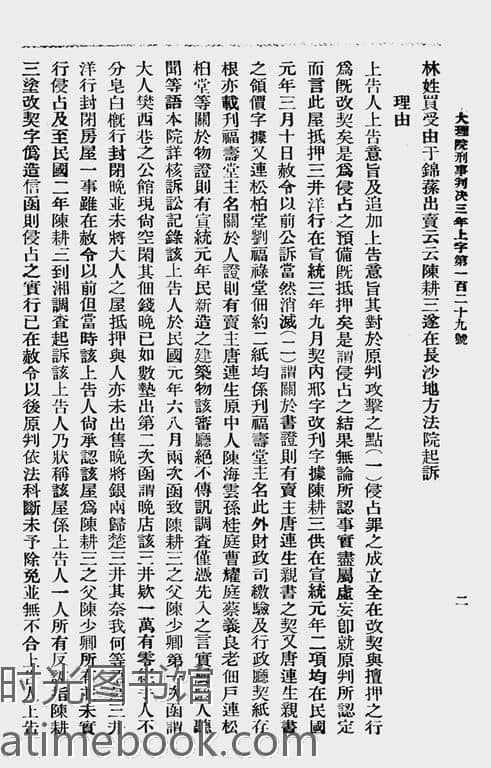 大理院刑事判决三年上字第一百二十九號
二
林姓買受由于錦蓀出賣云云陳耕三遂在長沙地方法院起訴
理由
上告人上告意旨及追加上告意旨其對於原判攻擊之點(一)侵占罪之成立全在改契與擅押之行
爲旣改契矣是爲侵占之預備旣抵押矣是謂侵占之結果無論所認事實盡屬虛妄卽就原判所認定
而言此屋抵押三井洋行在宣統三年九月契內邢字改刋字據陳耕三供在宣統元年二項均在民國
元年三月十日赦令以前公訴當然消滅(二)謂關於書證則有賣主唐連生親書之契又唐連生親書
之領價字據又連松柏堂劉福祿堂佃約二紙均係刋福壽堂主名此外財政司繳驗及行政廳契紙存
根亦載刋福壽堂主名關於人證則有賣主唐連生原中人陳海雲孫桂庭曹耀庭蔡義良老佃戶連松
柏堂等關於物證則有宣統元年民新造之建築物該審廳絕不傳訊調查僅憑先入之言實
聞等語本院詳核訴訟記錄該上告人於民國元年六八月兩次函致陳耕三之父陳少卿弟一次函謂
大人樊西巷之公館現尙空閑其佃錢晚已如數墊出第二次函謂晚店該三井欵一萬有零
分皂白槪行封閉晚並未將大人之屋抵押與人亦未出售晚將銀兩歸楚三井其奈我何等
洋行封閉房屋一事雖在赦令以前但當時該上告人尙承認該屋爲陳耕三之父陳少卿所
行侵占及至民國二年陳耕三到湘調查起訴該上告人乃狀稱該屋係上告人一人所有反
三塗改契字僞造信函則侵占之實行已在赦令以後原判依法科斷未予除免並無不合上告人上告
时光图书馆
atimebook.com